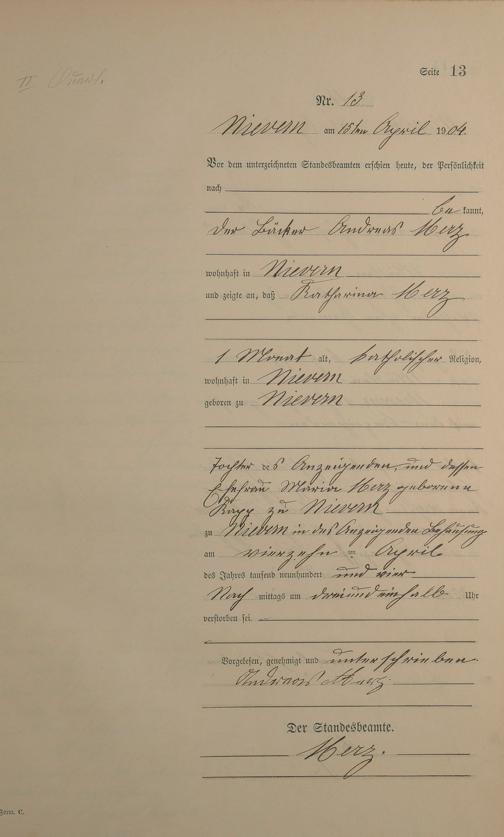 Seite 13
II Quart.
Nr. 13
Nievern am 15ten April 1904.
Vor dem unterzeichneten Standesbeamten erschien heute, der Persönlichkeit
nach
be kannt,
der Bäcker Andreas Merz
wohnhaft in Nievern
und zeigte an, daß Katharina Merz
1 Monat alt, katholischer Religion,
wohnhaft in Nievern
geboren zu Nievern
Tochter des Anzeigenden und dessen
Ehefrau Maria Merz geborenen
Kapp zu Nievern
zu Nievern in des Anzeigenden Behausung
am vierzehn ten April
des Jahres tausend neunhundert und vier
Nach mittags um dreiundeinhalb Uhr
verstorben sei.
Vorgelesen, genehmigt und unterschrieben
Andreas Merz
Der Standesbeamte.
Merz.
Form. C.